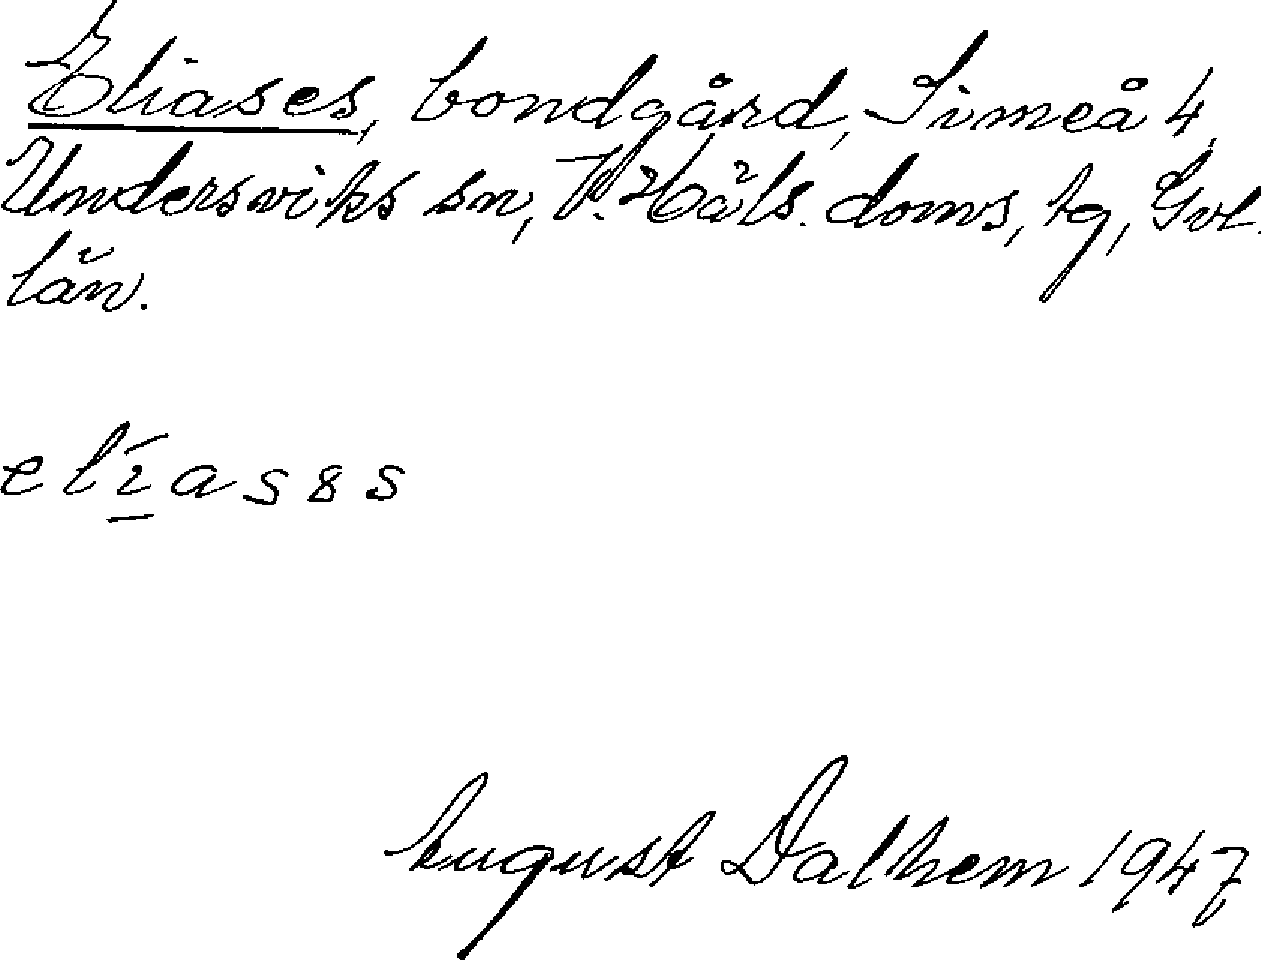 Eliases, bondgård, Simeå 4,
Undersviks sn, V. Häls. doms, tg, Gvl.
län.
elīases
August Dalhem 1947